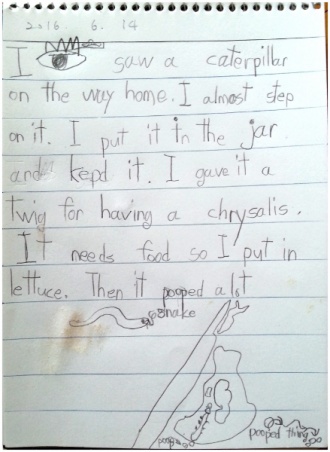 2016. 6. 14
I saw a caterpillar
on the way home. I almost step
on it. I put it in the jar
and kepd it. I gave it a
twig for having a chrysalis.
It needs food so I put in
lettuce. Then it pooped a lot
snake
poop
pooped thing